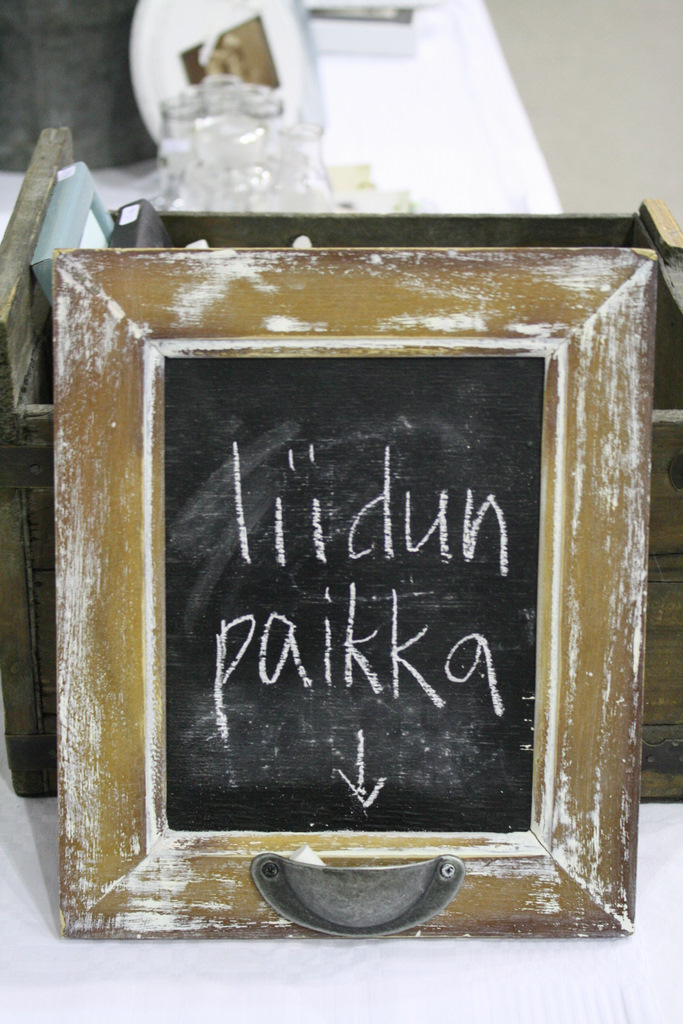 liidun
paikka
↓